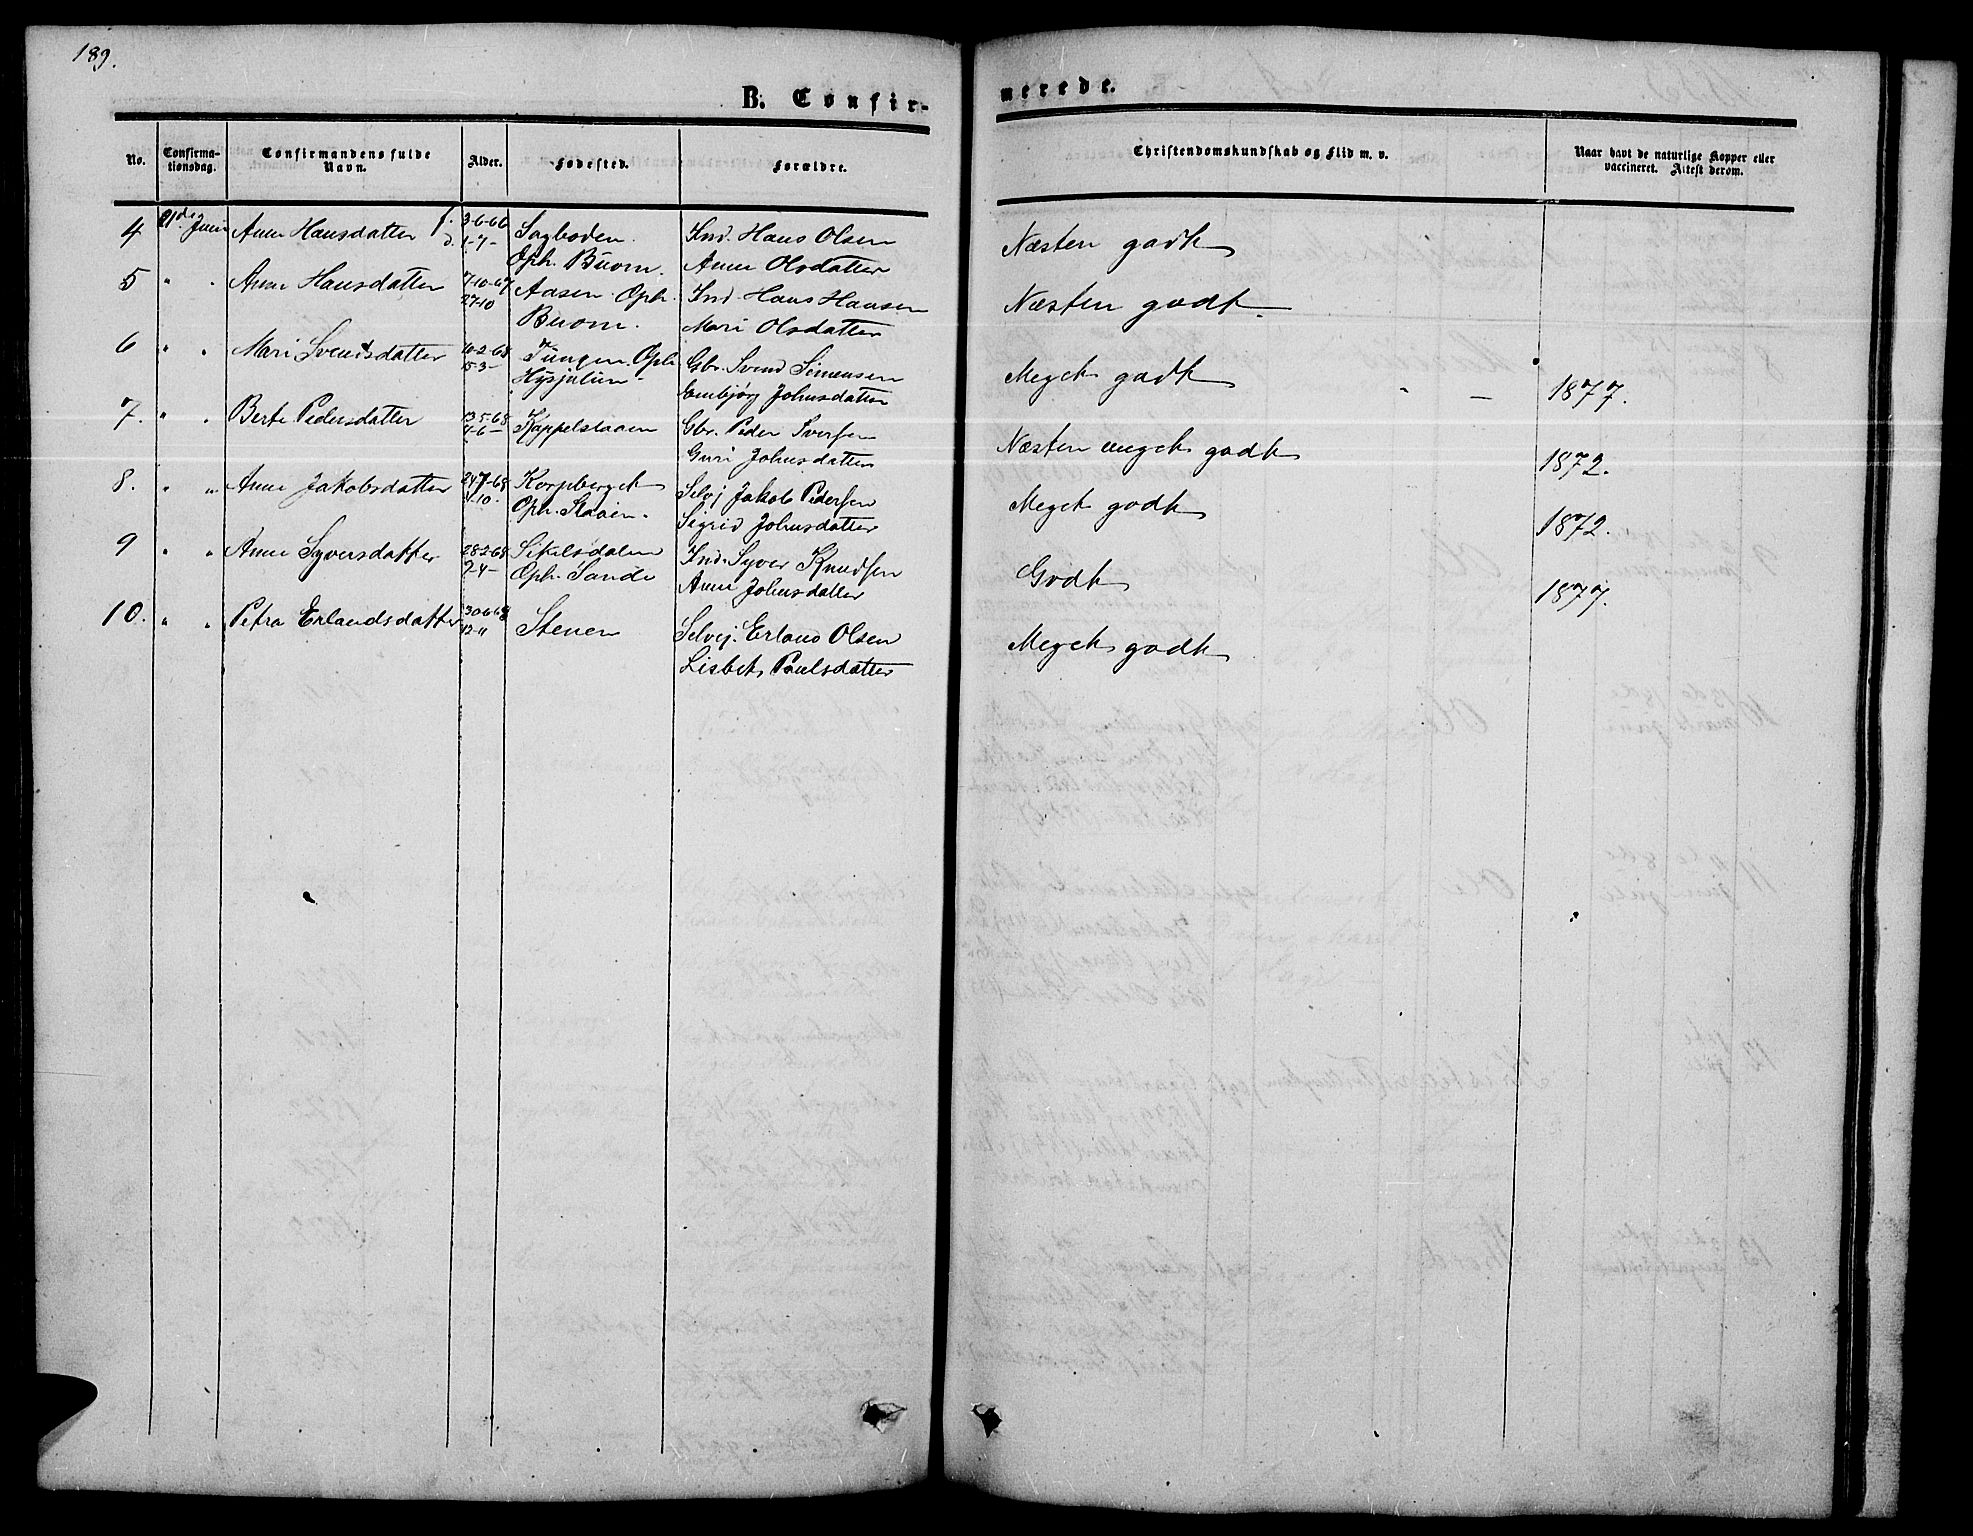 189.
B. Confir-
merede.
No.
Confirma-
tionsdag.
Confirmandens fulde
Navn.
Alder.
Fødested.
Forældre.
Christendomskundskab og Flid m. v.
Naar havt de naturlige Kopper eller
vaccineret. Attest derom.
4 21de Juni Anne Hansdatter f. 3-6-66 Sagboden. Ind. Hans Olsen Næsten godt
d. 1-7- Oph. Buom. Anne Olsdatter
5 " " Anne Hansdatter 7-10-67 Aasen. Oph. Ind. Hans Hansen Næsten godt
27-10 Buom. Mari Olsdatter
6 " " Mari Svendsdatter 10-2-68 Tungen. Oph. Gbr. Svend Simensen Meget godt - 1877.
15-3- Embjørg Johnsdatter
7. " " Berte Pedersdatter 13-5-68 Kappelslaaen Gbr. Peder Iversen Næsten meget godt 1872.
Guri Johnsdatter
8. " " Anne Jakobsdatter Korpberget Selvj Jakob Pedersen Meget godt 1872.
4-10. Oph. Staaen. Sigrid Johnsdatter
9 " " Anne Syversdatter 28-2-68 Sikelsdalen Ind. Syver Knudsen Godt 1877.
Oph. Sande Anne Johnsdatter
10. " " Petra Erlandsdatter 30-6-68 Stenen Selvej. Erland Olsen Meget godt
Lisbet Paulsdatter